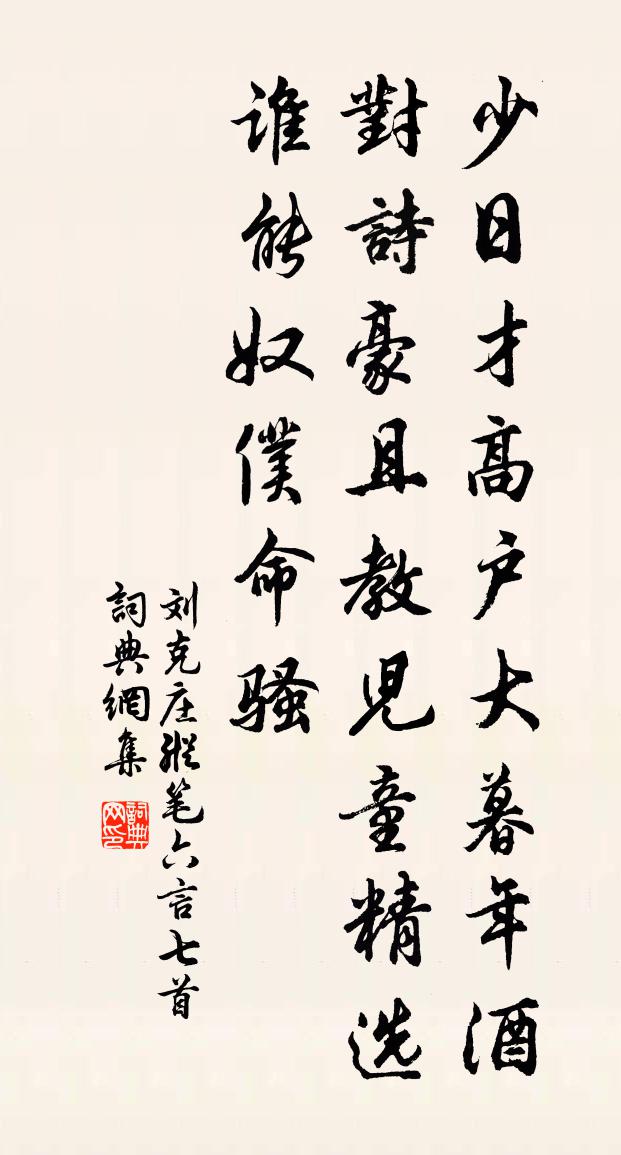 少日才高户大暮年酒
對詩豪且教兒童精选
谁能奴僕命骚
刘克庄縱笔六言七首
詞典網集
詞典网印